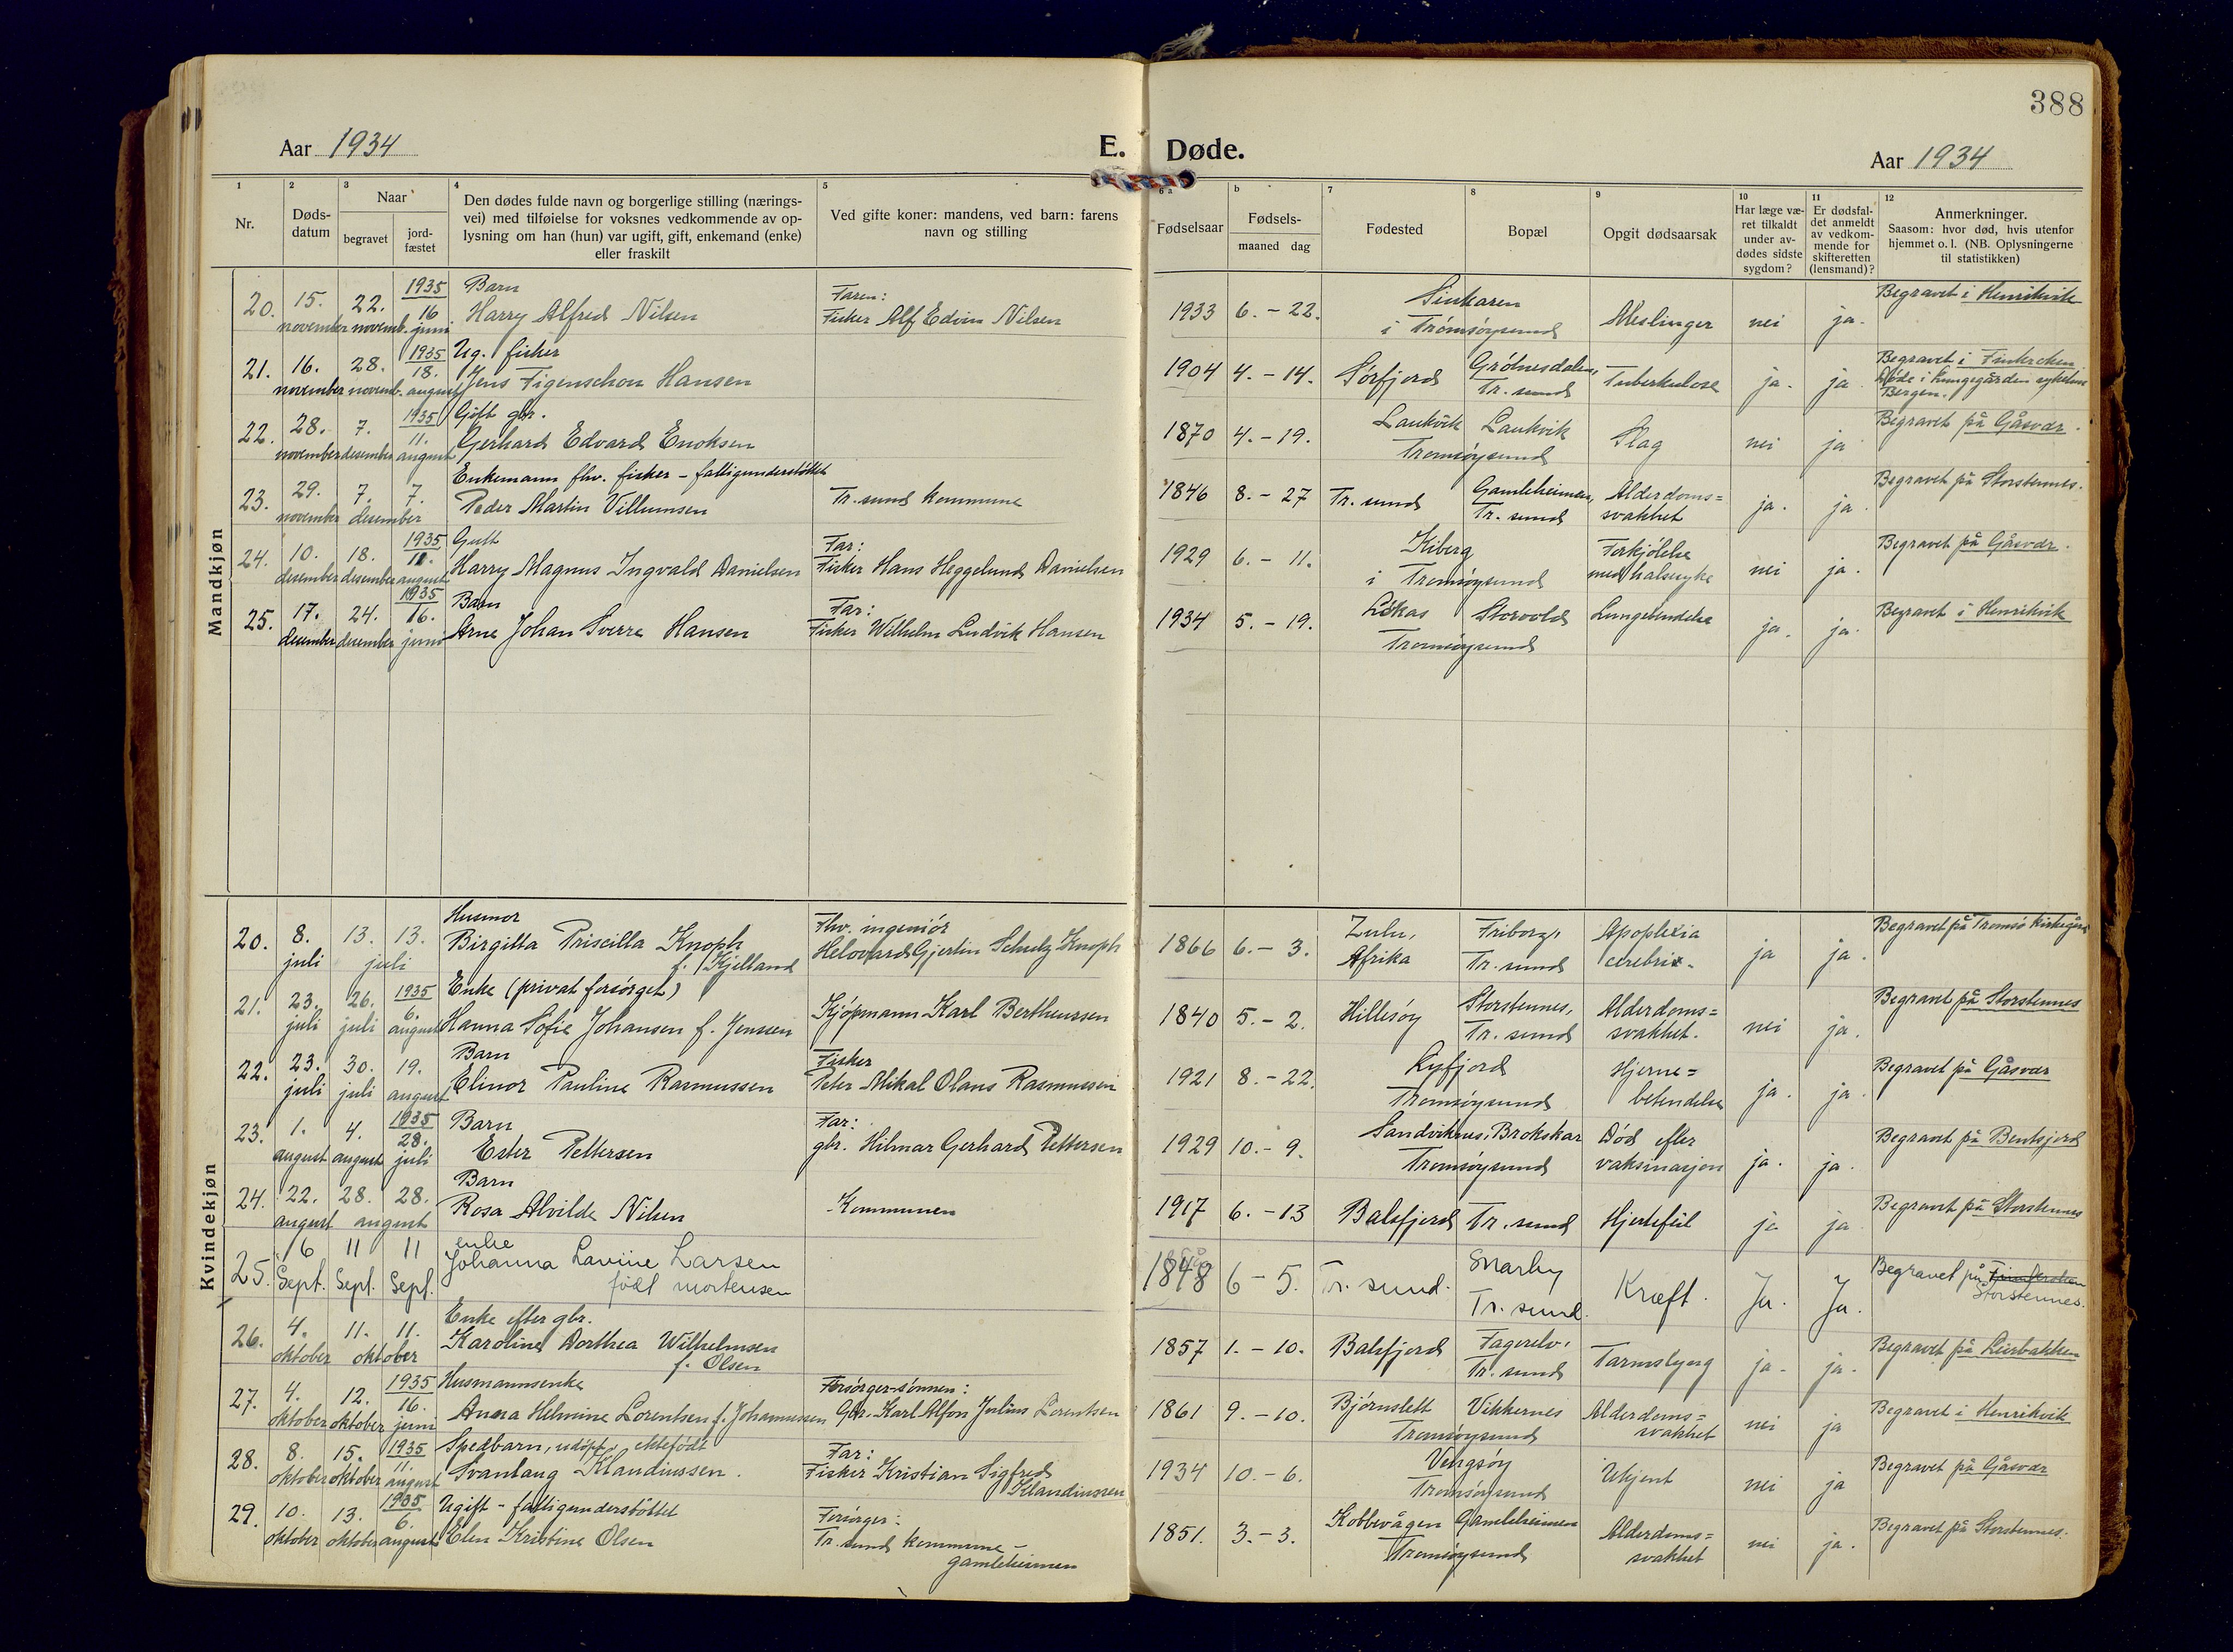 388
Aar 1934
E. Døde.
Aar 1934
1
Nr.
2
Døds-
datum
3
Naar
begravet
jord-
fæstet
4
Den dødes fulde navn og borgerlige stilling (nærings-
vei) med tilføielse for voksnes vedkommende av op-
lysning om han (hun) var ugift, gift, enkemand (enke)
eller fraskilt
5
Ved gifte koner: mandens, ved barn: farens
navn og stilling
6 a
Fødselsaar
b
Fødsels-
maaned dag
7
Fødested
8
Bopæl
9
Opgit dødsaarsak
10
Har læge væ-
ret tilkaldt
under av-
dødes sidste
sygdom?
11
Er dødsfal-
det anmeldt
av vedkom-
mende for
skifteretten
(lensmand)?
12
Anmerkninger.
Saasom: hvor død, hvis utenfor
hjemmet o. l. (NB. Oplysningerne
til statistikken)
Mandkjøn
20. 15. november 22. novemb. 1935 16 juni
Barn
Harry Alfred Nilsen
Faren:
Fisker Alf Edvin Nilsen
1933 6. - 22.
i Tromsøysund
Meslinger nei ja.
Begravet i Henrikvik
21. 16. november 28. novemb. 1935 18. august
Ug. fisker
Jens Figenschou Hansen
1904 4. - 14. Sørfjord
Tr. sund
Tuberkulose ja. ja
Begravet i Finkroken
Døde i
Bergen.
22. 28. november 7. desember 1935 11. august
Gift gbr.
Gerhard Edvard Enoksen
1870 4. - 19. Laukvik Laukvik
Tromsøysund
Slag nei ja
Begravet på Gåsvær.
23. 29. november 7. 7. desember
Enkemann fhv. fisker - fattigunderstøttet
Peder Martin Villumsen
Tr. sund kommune
1846 8. - 27 Tr. sund Gamleheimen,
Tr. sund
Alderdoms=
svakhet
ja. ja.
Begravet på Storstennes.
24. 10. desember 18. desember 1935 11. august
Gutt
Harry Magnus Ingvald Danielsen
Far:
Fisker Hans Heggelund Danielsen
1929 6. - 11. Kiberg
i Tromsøysund
Forkjølelse
med halssyke
nei ja.
Begravet på Gåsvær.
25. 17. desember 24. desember 1935 16. juni
Barn
Arne Johan Sverre Hansen
Far:
Fisker Wilhelm Ludvik Hansen
1934 5. - 19. Storvold
Tromsøysund
Lungebetndelse
ja. ja.
Begravet i Henrikvik
Kvindekjøn
20. 8. juli 13. 13. juli
Husmor
Birgitta Priscilla Knoph
f. Kjelland
Fhv. ingeniør
Schulz Knoph
1866 6. - 3. Zulu,
Afrika
Tr. sund
Apoplexia
cerebri.
ja ja.
Begravet på Tromsø kirkegård
21. 23. juli 26. juli 1935 6. august
Enke (privat forsørget)
Hanna Sofie Johansen f. Jenssen
Kjøpmann Karl Bertheussen
1840 5. - 2. Hillesøy Storstennes,
Tr. sund
Alderdoms=
svakhet.
nei ja.
Begravet på Storstennes
22. 23. juli 30. juli 19. august
Barn
Elinor Pauline Rasmussen
Fisker
Peter Mikal Olaus Rasmussen
1921 8. - 22. Ryfjord
Tromsøysund
Hjerne=
betendelse
ja. ja.
Begravet på Gåsvær
23. 1. august 4. august 1935 28. juli
Barn
Ester Pettersen
Far:
gbr. Hilmar Gerhard Pettersen
1929 10. - 9. Sandviknes, Brokskar
Tromsøysund
Død efter
vaksinasjon
ja. ja.
Begravet på Bentsjord
24. 22. august 28. 28. august
Barn
Rosa Alvilde Nilsen
Kommunen
1917 6. - 13 Balsfjord Tr. sund Hjertefeil ja ja
Begravet på Storstennes
25. 6 Sept. 11 Sept. 11 Sept.
enke
Johanna Lavine Larsen
født mortensen
1848 6 - 5. Tr. sund. Snarby
Tr. sund.
Kræft. Ja. Ja.
Begravet på Finkroken
Storstennes.
26. 4. oktober 11. 11. oktober
Enke efter gbr.
Karoline Dorthea Wilhelmsen
f. Olsen
1857 1. - 10. Balsfjord Fagerelv.
Tr. sund
Tarmslyng ja. ja.
Begravet på Leirbakken
27. 4. oktober 12. oktober 1935 16. juni
Husmannsenke
Anna Helmine Lorentsen f. Johannessen
Forsørger-sønnen:
Gbr. Karl Alfon Julius Lorentsen
1861 9. - 10. Bjørnslett Vikkernes
Tromsøysund
Alderdoms=
svakhet
nei ja
Begravet i Henrikvik
28. 8. oktober 15. oktober 1935 11. august
Spedbarn, udøpt, ektefødt
Svanlaug Klaudiussen.
Far:
Fisker Kristian Sigfred
Klaudiussen
1934 10. - 6. Vengsøy
Tromsøysund
Ukjent nei ja
Begravet på Gåsvær
29. 10. oktober 13. oktober 1935 6. august
Ugift - fattigunderstøttet
Elen Kristine Olsen
Forsørger:
Tr. sund kommune -
gamleheimen
1851. 3. - 3. Kobbevågen Gamleheimen
Tromsøysund
Alderdoms=
svakhet
nei ja.
Begravet på Storstennes.